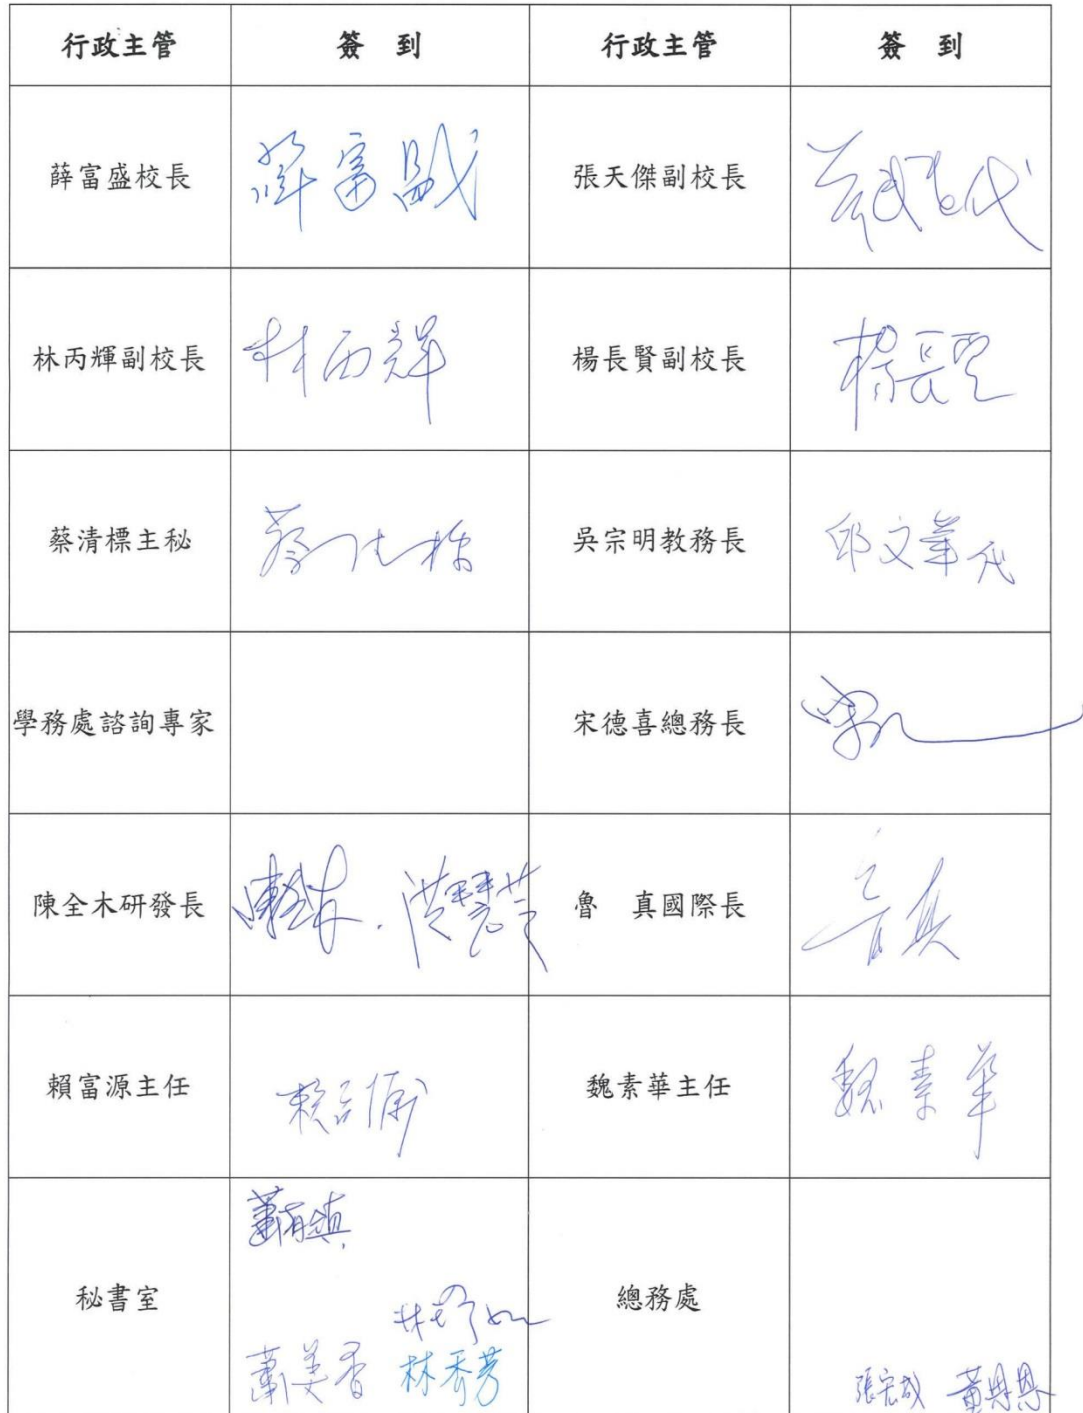 行政主管 簽 到 行政主管 簽 到
薛富盛校長 薛富盛 張天傑副校長 代
林丙輝副校長 林丙輝 楊長賢副校長 楊長賢
蔡清標主秘 蔡清標 吳宗明教務長 邱文華代
學務處諮詢專家 宋德喜總務長
陳全木研發長 陳全木 魯 真國際長 魯真
賴富源主任 魏素華主任 魏素華
蕭有鎮
秘書室 總務處
蕭美香 林秀芳 張宏斌